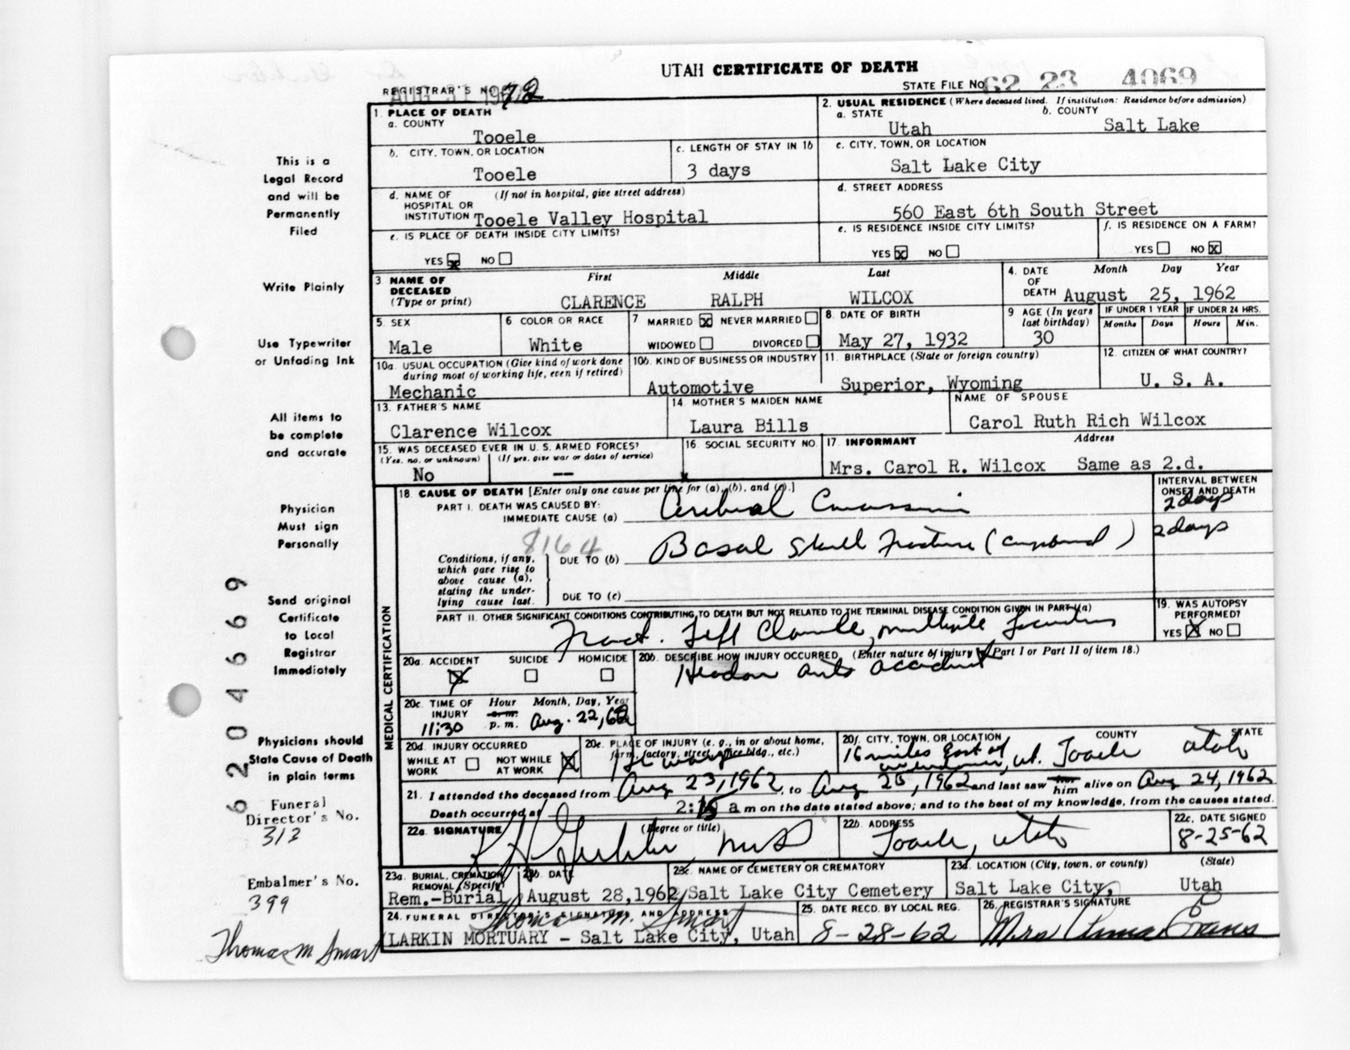 UTAH CERTIFICATE OF DEATH
REGISTRAR'S NO. 72
STATE FILE NO. 62 23 4069
1. PLACE OF DEATH
a. COUNTY
Tooele
2. USUAL RESIDENCE (Where deceased lived. If institution: Residence before admission)
a. STATE
Utah
b. COUNTY
Salt Lake
b. CITY, TOWN, OR LOCATION
Tooele
c. LENGTH OF STAY IN 1b
3 days
c. CITY, TOWN, OR LOCATION
Salt Lake City
d. NAME OF HOSPITAL OR INSTITUTION
(If not in hospital, give street address)
Tooele Valley Hospital
d. STREET ADDRESS
560 East 6th South Street
e. IS PLACE OF DEATH INSIDE CITY LIMITS?
YES NO
e. IS RESIDENCE INSIDE CITY LIMITS?
YES NO
f. IS RESIDENCE ON A FARM?
YES NO
3 NAME OF DECEASED (Type or print)
First Middle Last
CLARENCE RALPH WILCOX
4. DATE OF DEATH
Month Day Year
August 25, 1962
5. SEX
Male
6 COLOR OR RACE
White
7 MARRIED NEVER MARRIED
WIDOWED DIVORCED
8. DATE OF BIRTH
May 27, 1932
9 AGE (In years last birthday)
30
IF UNDER 1 YEAR
Months Days
IF UNDER 24 HRS.
Hours Min.
10a. USUAL OCCUPATION (Give kind of work done during most of working life, even if retired)
Mechanic
10b. KIND OF BUSINESS OR INDUSTRY
Automotive
11. BIRTHPLACE (State or foreign country)
Superior, Wyoming
12. CITIZEN OF WHAT COUNTRY?
U. S. A.
13. FATHER'S NAME
Clarence Wilcox
14 MOTHER'S MAIDEN NAME
Laura Bills
NAME OF SPOUSE
Carol Ruth Rich Wilcox
15. WAS DECEASED EVER IN U. S. ARMED FORCES?
(Yes, no, or unknown) (If yes, give war or dates of service)
No --
16 SOCIAL SECURITY NO.
17. INFORMANT Address
Mrs. Carol R. Wilcox Same as 2.d.
MEDICAL CERTIFICATION
18 CAUSE OF DEATH [Enter only one cause per line for (a), (b), and (c).]
PART I. DEATH WAS CAUSED BY:
IMMEDIATE CAUSE (a) Cerebral
INTERVAL BETWEEN ONSET AND DEATH
2 days
8164
Conditions, if any, which gave rise to above cause (a), stating the underlying cause last.
DUE TO (b) Basal Skull Fracture (compound)
2 days
DUE TO (c)
PART II. OTHER SIGNIFICANT CONDITIONS CONTRIBUTING TO DEATH BUT NOT RELATED TO THE TERMINAL DISEASE CONDITION GIVEN IN PART I(a)
Fract. Left Clavicle, multiple
19. WAS AUTOPSY PERFORMED?
YES NO
20a. ACCIDENT SUICIDE HOMICIDE
20b. DESCRIBE HOW INJURY OCCURRED. (Enter nature of injury in Part I or Part II of item 18.)
Headon auto accident
20c. TIME OF INJURY
Hour Month, Day, Year
a. m.
p. m.
11:30 Aug. 22, 62
20d. INJURY OCCURRED
WHILE AT WORK NOT WHILE AT WORK
20e. PLACE OF INJURY (e. g., in or about home, farm, factory, street, office bldg., etc.)
20f. CITY, TOWN, OR LOCATION COUNTY STATE
16 miles East of Tooele Utah
21. I attended the deceased from Aug 23, 1962, to Aug 25, 1962 and last saw him alive on Aug 24, 1962
Death occurred at 2:15 a m on the date stated above; and to the best of my knowledge, from the causes stated.
22a. SIGNATURE (Degree or title)
22b. ADDRESS
Tooele, Utah
22c. DATE SIGNED
8-25-62
23a. BURIAL, CREMATION REMOVAL (Specify)
Rem.-Burial
23b. DATE
August 28, 1962
23c. NAME OF CEMETERY OR CREMATORY
Salt Lake City Cemetery
23d. LOCATION (City, town, or county) (State)
Salt Lake City, Utah
24. FUNERAL DIRECTOR'S SIGNATURE AND ADDRESS
Thomas M. Smart
LARKIN MORTUARY - Salt Lake City, Utah
25. DATE RECD. BY LOCAL REG.
8-28-62
26. REGISTRAR'S SIGNATURE
Mrs
This is a
Legal Record
and will be
Permanently
Filed
Write Plainly
Use Typewriter
or Unfading Ink
All items to
be complete
and accurate
Physician
Must sign
Personally
Send original
Certificate
to Local
Registrar
Immediately
Physicians should
State Cause of Death
in plain terms
Funeral
Director's No.
313
Embalmer's No.
399
Thomas M Smart
6204669